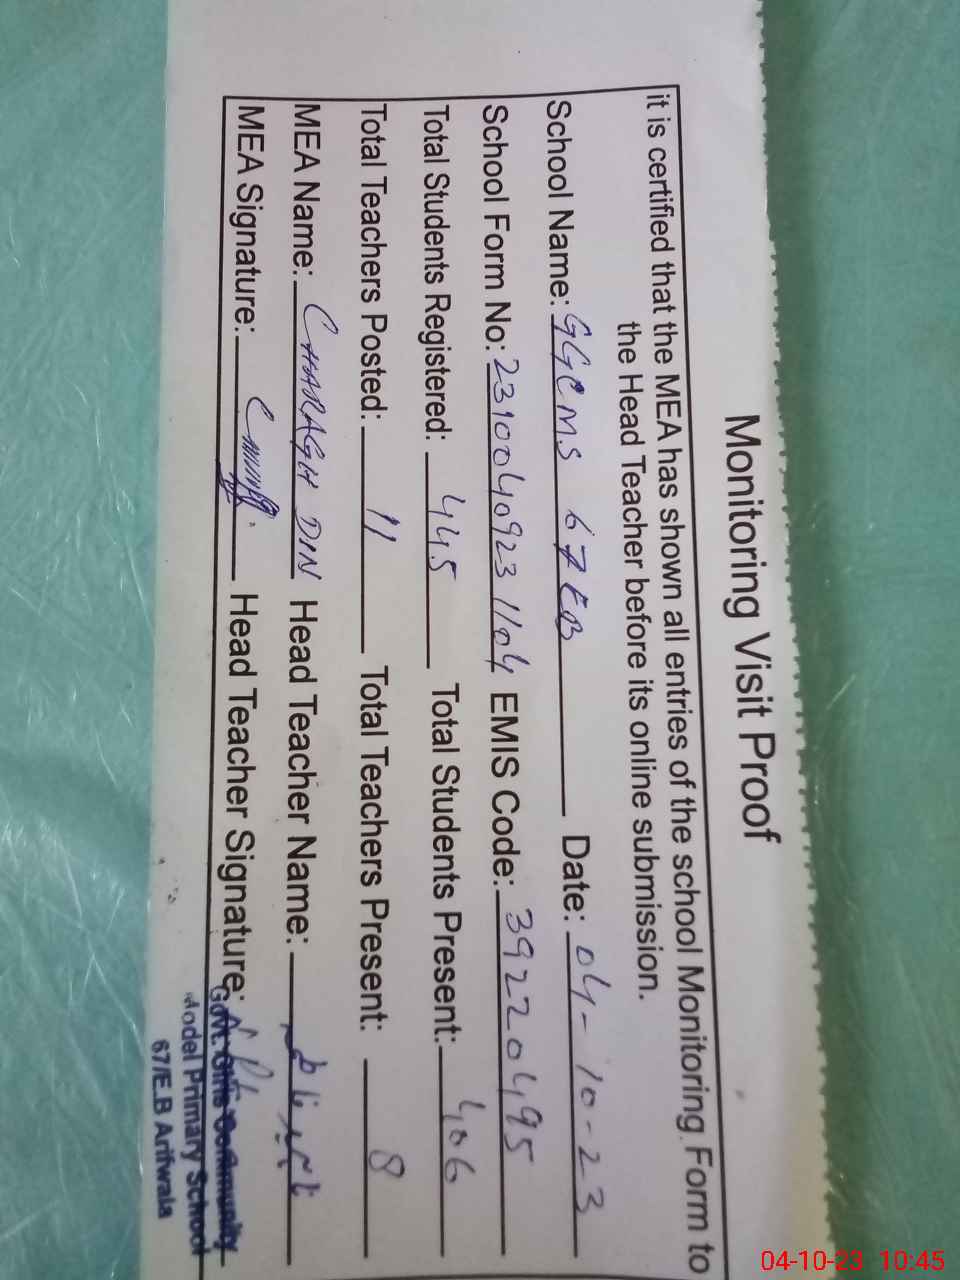 Monitoring Visit Proof
it is certified that the MEA has shown all entries of the school Monitoring Form to
the Head Teacher before its online submission.
School Name: GGCMS 67EB Date: 04-10-23
School Form No: 23100409231104 EMIS Code: 39220495
Total Students Registered: 445 Total Students Present: 406
Total Teachers Posted: 11 Total Teachers Present: 8
MEA Name: CHARAGH DIN Head Teacher Name:
MEA Signature: Head Teacher Signature:
Govt. Girls Community
Model Primary School
67/E.B Arifwala
04-10-23 10:45